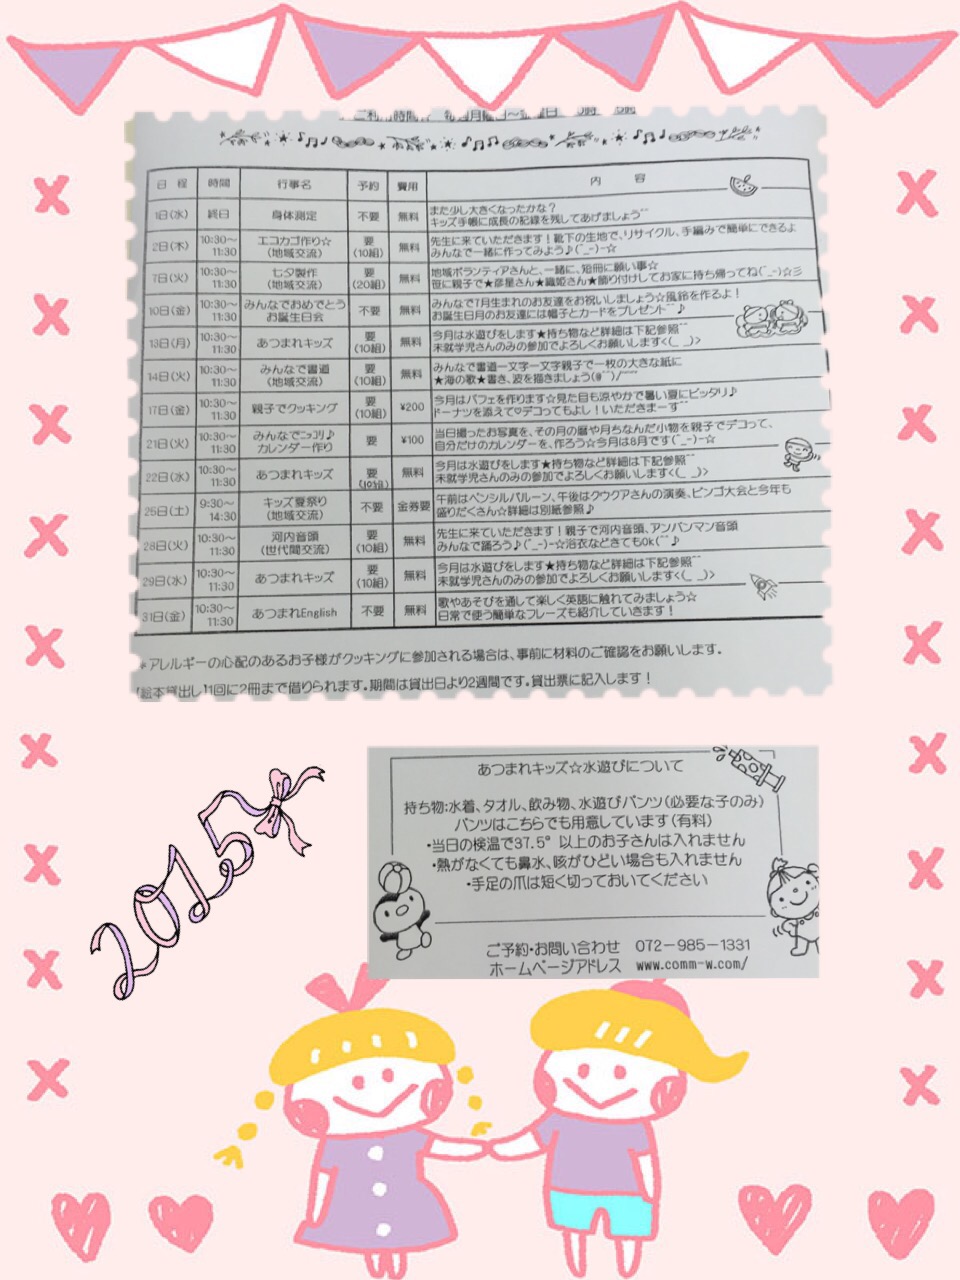 ご利用時間
日 程 時間 行事名 予約 費用 内 容
1日(水) 終日 身体測定 不要 無料 また少し大きくなったかな?
キッズ手帳に成長の記録を残してあげましょう^^
2日(木) 10:30~11:30 エコカゴ作り☆(地域交流) 要(10組) 無料 先生に来ていただきます!靴下の生地で、リサイクル、手編みで簡単にできるよ
みんなで一緒に作ってみよう♪(^_-)-☆
7日(火) 10:30~11:30 七夕製作(地域交流) 要(20組) 無料 地域ボランティアさんと、一緒に、短冊に願い事☆
笹に親子で★彦星さん★織姫さん★飾り付けしてお家に持ち帰ってね(^_-)☆彡
10日(金) 10:30~11:30 みんなでおめでとうお誕生日会 不要 無料 みんなで7月生まれのお友達をお祝いしましょう☆風鈴を作るよ!
お誕生日月のお友達には帽子とカードをプレゼント^^♪
13日(月) 10:30~11:30 あつまれキッズ 要(10組) 無料 今月は水遊びをします★持ち物など詳細は下記参照^^
未就学児さんのみの参加でよろしくお願いします<(_ _)>
14日(火) 10:30~11:30 みんなで書道(地域交流) 要(10組) 無料 みんなで書道一文字一文字親子で一枚の大きな紙に
★海の歌★書き、波を描きましょう(@^^)/~~~
17日(金) 10:30~11:30 親子でクッキング 要(10組) ¥200 今月はパフェを作ります☆見た目も涼やかで暑い夏にピッタリ♪
ドーナツを添えて♡デコってもよし!いただきまーす^^
21日(火) 10:30~11:30 みんなでニッコリ♪カレンダー作り 要 ¥100 当日撮ったお写真を、その月の暦や月ちなんだ小物を親子でデコって、
自分だけのカレンダーを、作ろう☆今月は8月です(^_-)-☆
22日(水) 10:30~11:30 あつまれキッズ 要(10組) 無料 今月は水遊びをします★持ち物など詳細は下記参照^^
未就学児さんのみの参加でよろしくお願いします<(_ _)>
25日(土) 9:30~14:30 キッズ夏祭り(地域交流) 不要 金券要 午前はペンシルバルーン、午後はクウクアさんの演奏、ビンゴ大会と今年も
盛りだくさん☆詳細は別紙参照♪
28日(火) 10:30~11:30 河内音頭(世代間交流) 要(10組) 無料 先生に来ていただきます!親子で河内音頭、アンパンマン音頭
みんなで踊ろう♪(^_-)-☆浴衣などきてもOk(^^♪
29日(水) 10:30~11:30 あつまれキッズ 要(10組) 無料 今月は水遊びをします★持ち物など詳細は下記参照^^
未就学児さんのみの参加でよろしくお願いします<(_ _)>
31日(金) 10:30~11:30 あつまれEnglish 不要 無料 歌やあそびを通して楽しく英語に触れてみましょう☆
日常で使う簡単なフレーズも紹介していきます!
*アレルギーの心配のあるお子様がクッキングに参加される場合は、事前に材料のご確認をお願いします。
[絵本貸出し]1回に2冊まで借りられます。期間は貸出日より2週間です。貸出票に記入します!
2015
あつまれキッズ☆水遊びについて
持ち物:水着、タオル、飲み物、水遊びパンツ(必要な子のみ)
パンツはこちらでも用意しています(有料)
・当日の検温で37.5°以上のお子さんは入れません
・熱がなくても鼻水、咳がひどい場合も入れません
・手足の爪は短く切っておいてください
ご予約・お問い合わせ 072-985-1331
ホームページアドレス www.comm-w.com/